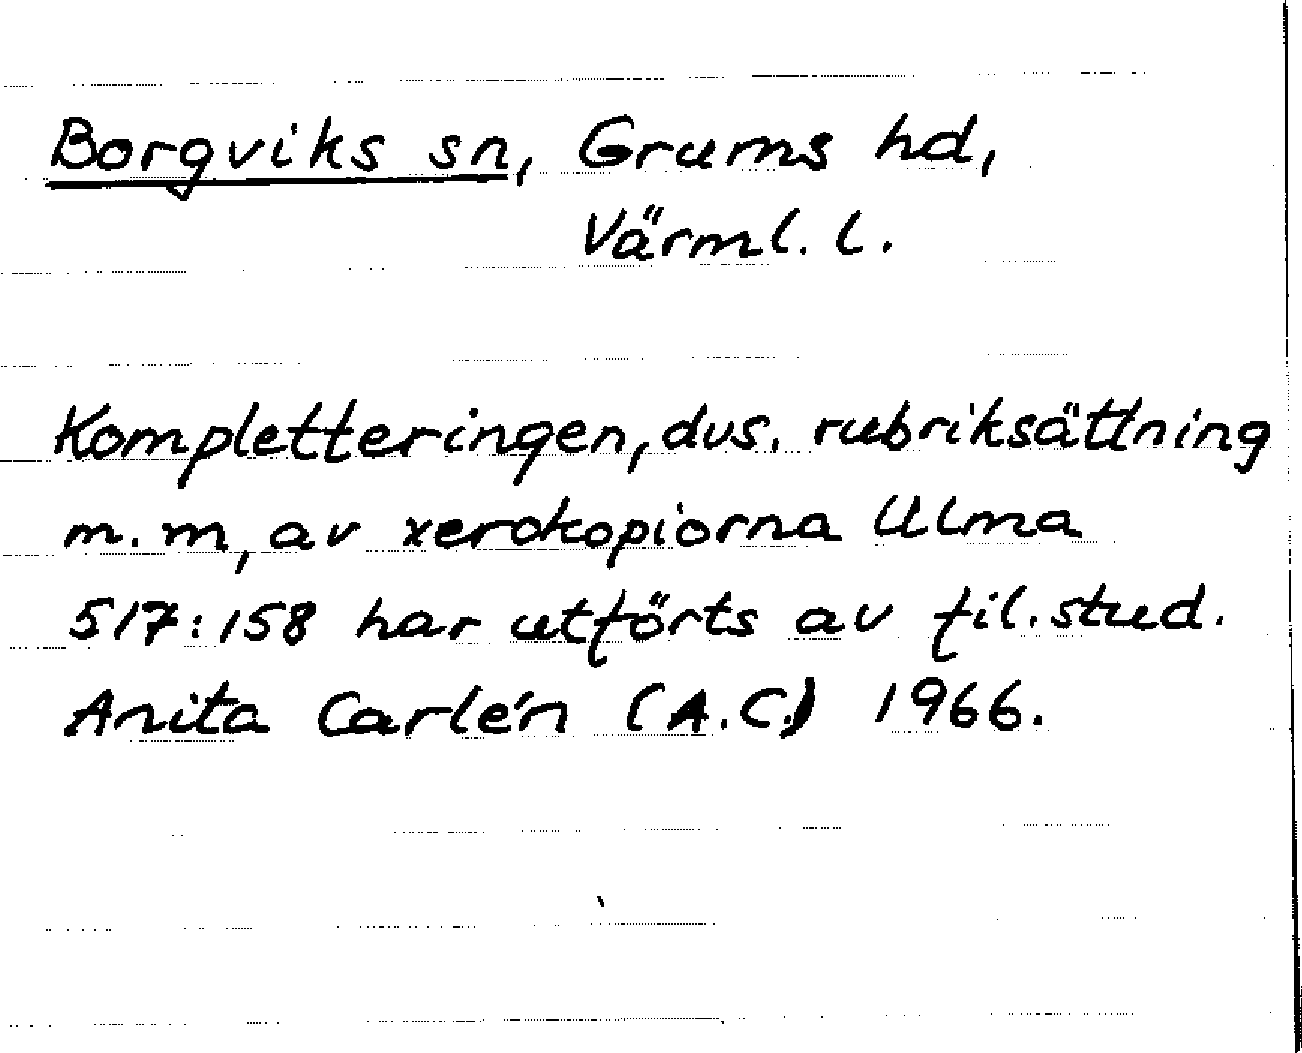 Borgviks sn, Grums hd,
Värml. l.
Kompletteringen, dvs. rubriksättning
m.m, av xerokopiorna ULma
517:158 har utförts av fil. stud.
Anita Carlén (A.C.) 1966.